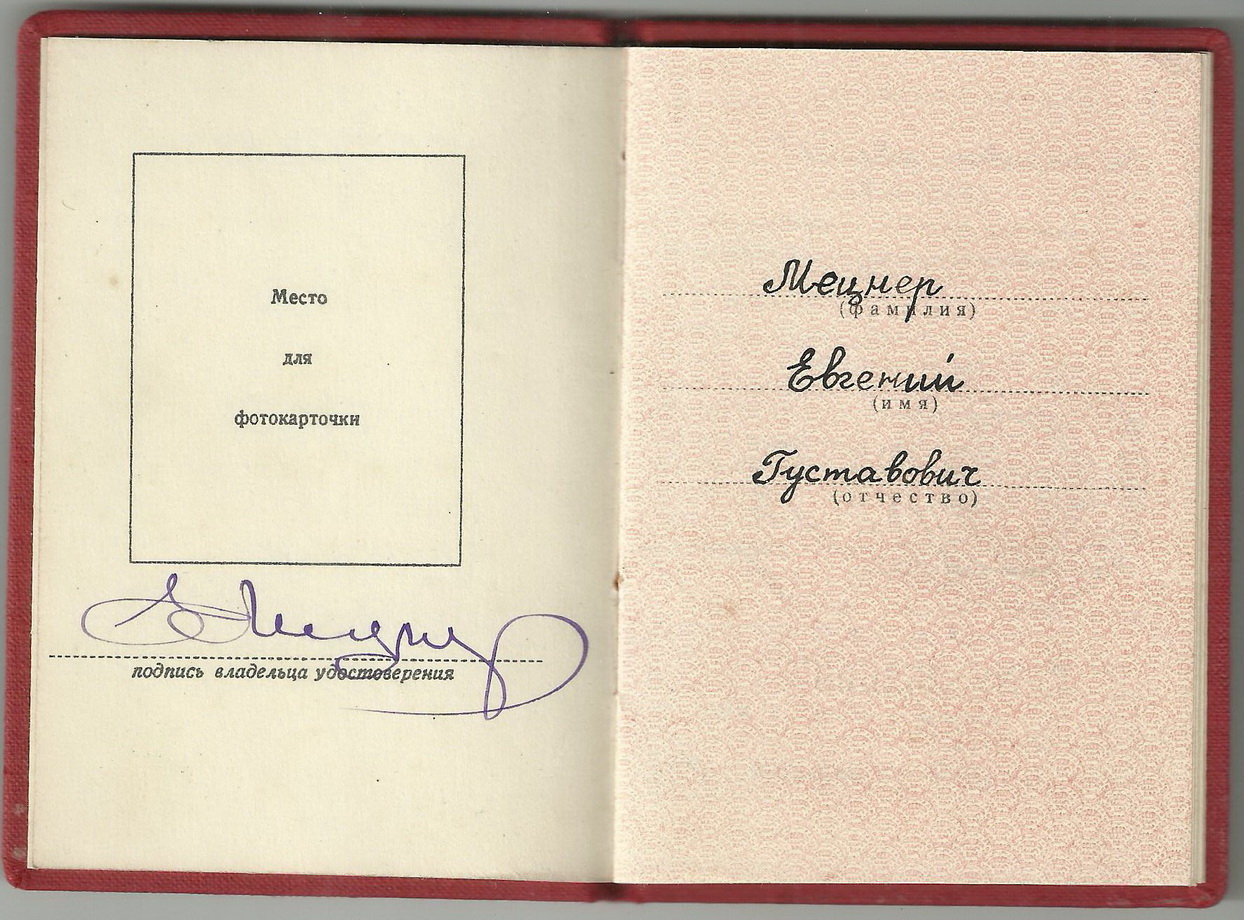 Место
для
фотокарточки
Е Мецнер
подпись владельца удостоверения
Мецнер
(фамилия)
Евгений
(имя)
Густавович
(отчество)